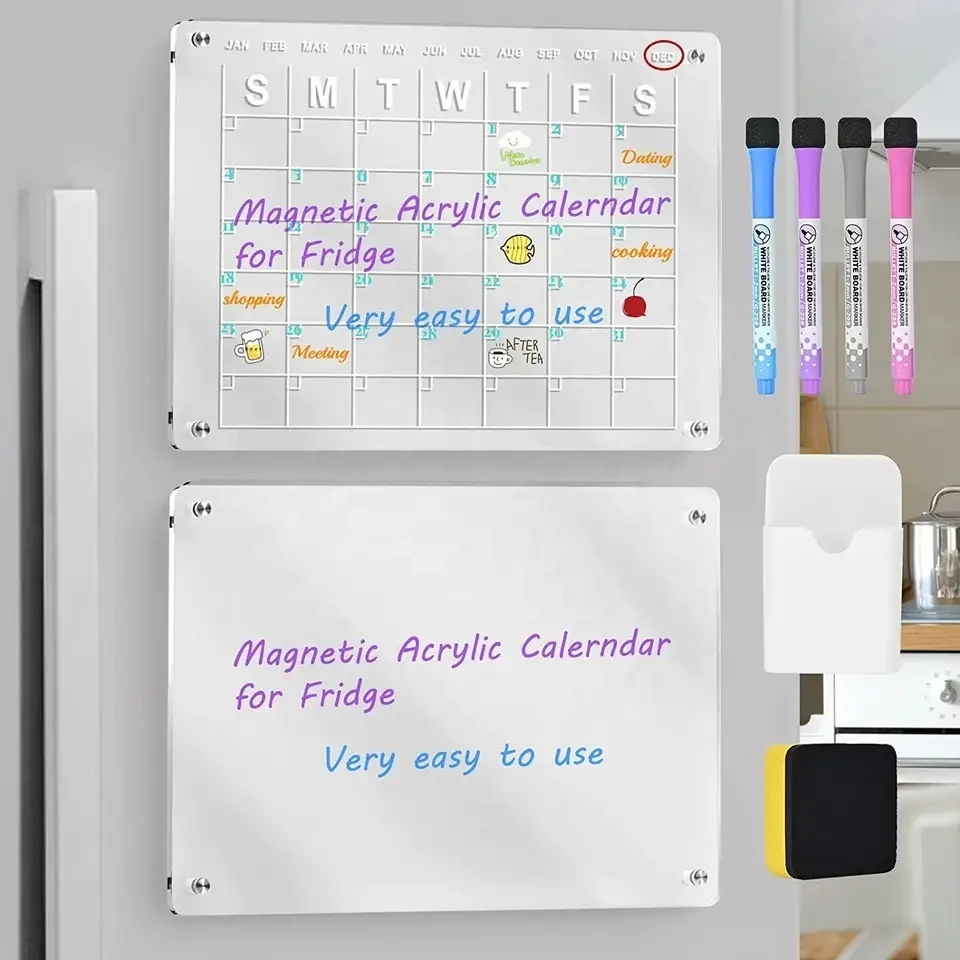 JAN FEB MAR APR MAY JUN JUL AUG SEP OCT NOV DEC
S M T W T F S
1 2 3
Dating
4 5 6 7 8 9 10
Magnetic Acrylic Calerndar
11 12 13 14 15 16 17
for Fridge
cooking
18 19 20 21 22 23 24
shopping
Very easy to use
25 26 27 28 29 30 31
Meeting
AFTER
TEA
Magnetic Acrylic Calerndar
for Fridge
Very easy to use
WHITE BOARD
MARKER
WHITE BOARD
MARKER
WHITE BOARD
MARKER
WHITE BOARD
MARKER